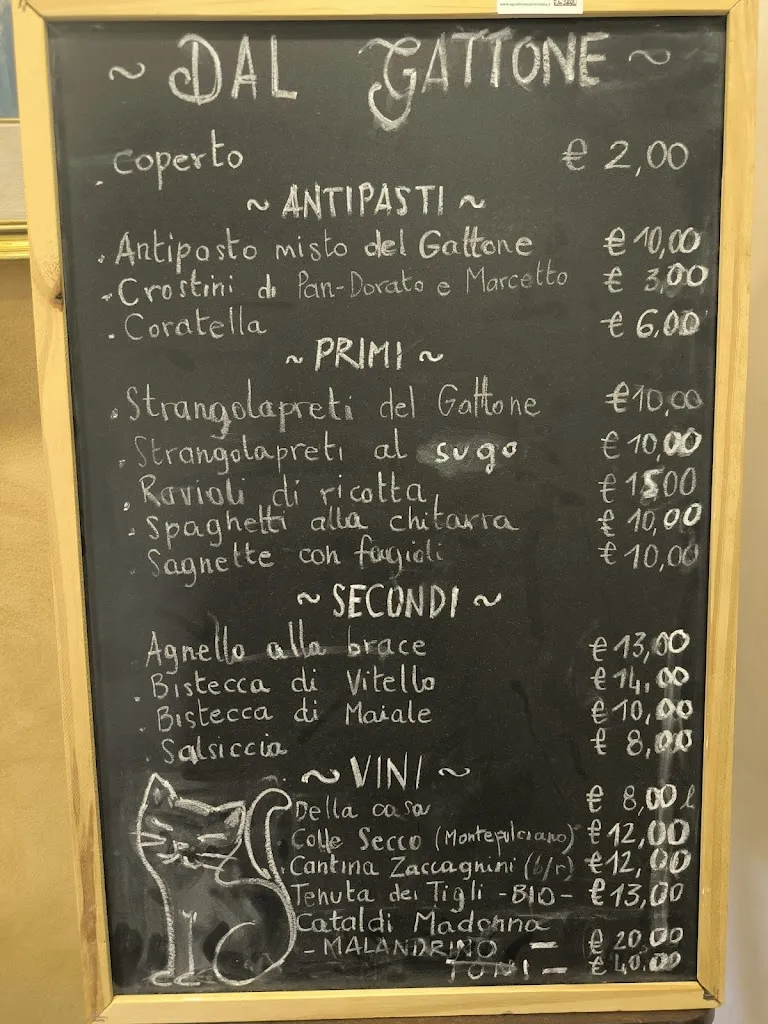 ~ DAL GATTONE ~
. coperto € 2,00
~ ANTIPASTI ~
. Antipasto misto del Gattone € 10,00
. Crostini di Pan-Dorato e Marcetto € 3,00
. Coratella € 6,00
~ PRIMI ~
. Strangolapreti del Gattone € 10,00
. Strangolapreti al sugo € 10,00
. Ravioli di ricotta € 1500
. Spaghetti alla chitarra € 10,00
. Sagnette con fagioli € 10,00
~ SECONDI ~
Agnello alla brace € 13,00
. Bistecca di Vitello € 14,00
. Bistecca di Maiale € 10,00
. Salsiccia € 8,00
~ VINI ~
Della casa € 8,00 l
Colle Secco (Montepulciano) € 12,00
Cantina Zaccagnini (b/r) € 12,00
Tenuta dei Tigli - BIO - € 13,00
Cataldi Madonna
- MALANDRINO - € 20,00
TONI - € 40,00